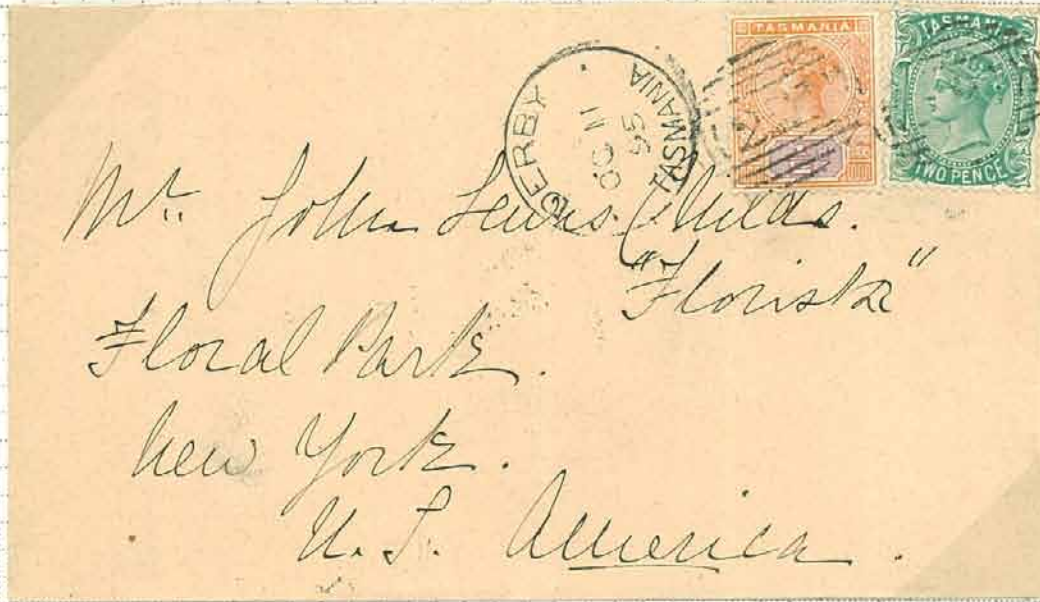 TASMANIA
TASMANIA
TWO PENCE
DERBY
TASMANIA
Mr. John Lewis Childs.
"Florist"
Floral Park.
New York.
U. S. America.